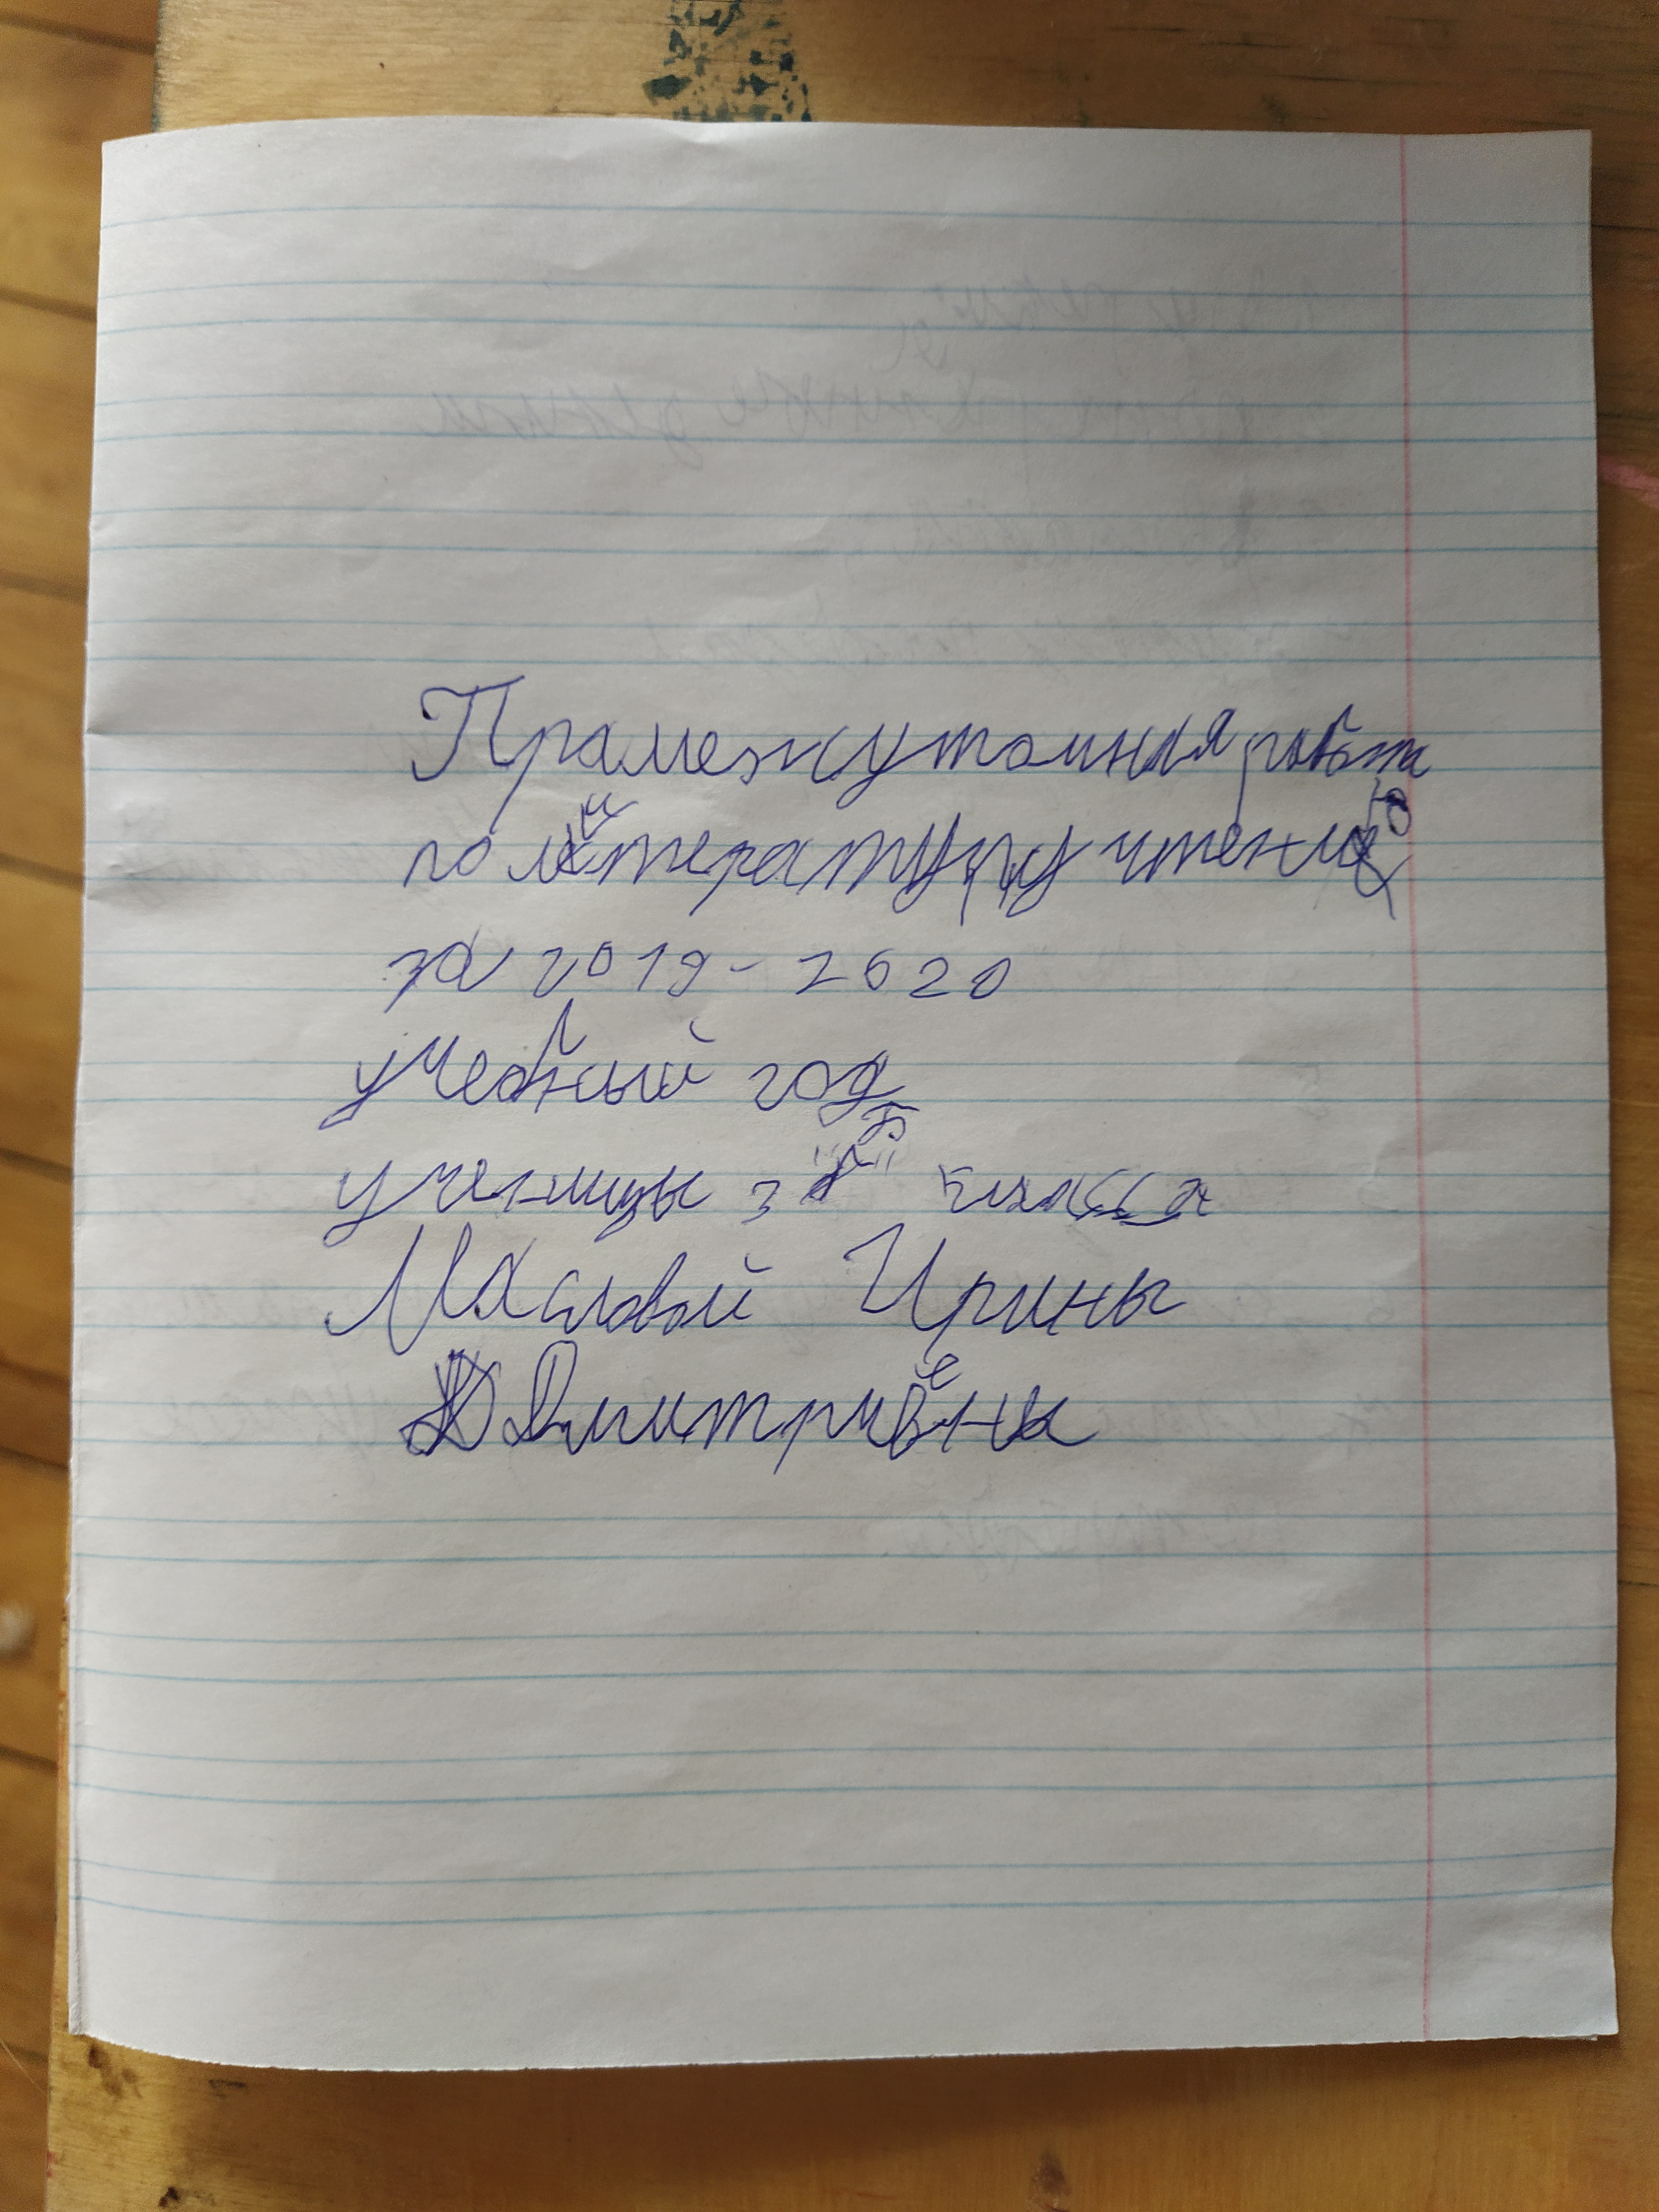 Прамежуточная работа
по литературу чтению
за 2019-2020
учебный год
ученицы 3 "Б" класса
Масловой Ирины
Дмитриевны